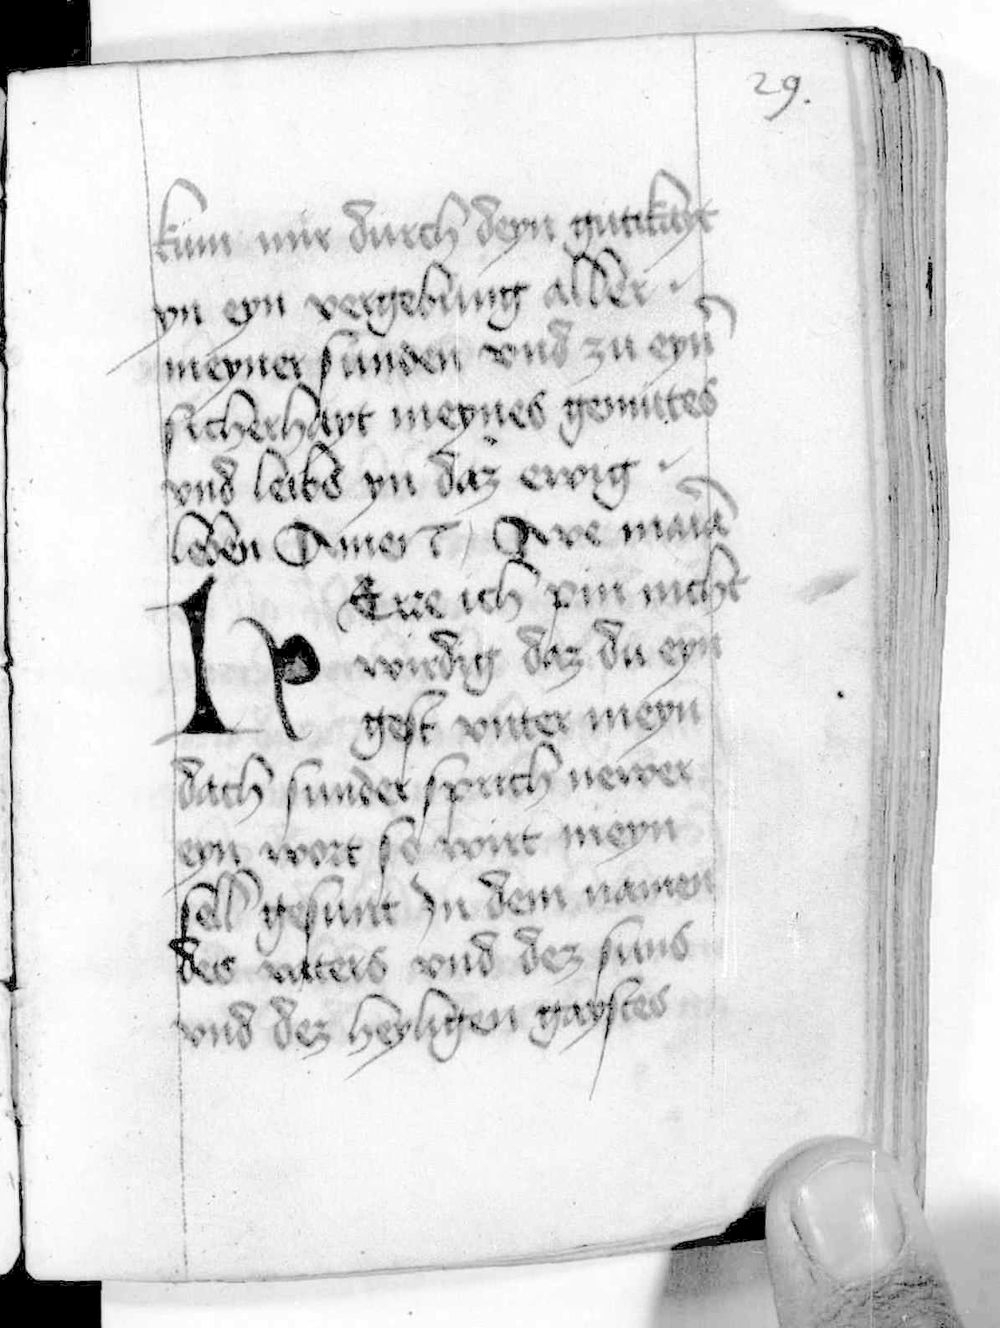 29.
kum mir durch deyn gutikayt
yn eyn vergebung aller
meyner sunden vnd zu eyn̄
sicherhayt meynes gemutes
vnd leibs yn daz ewig
leben Amen Ave maīa
Herre ich pin nicht
wirdig daz du eyn
gest vnter meyn
dach sunder sprich newer
eyn wort so wirt meyn
sell gesunt In dem namen
des vaters vnd dez suns
vnd dez heyligen gaystes